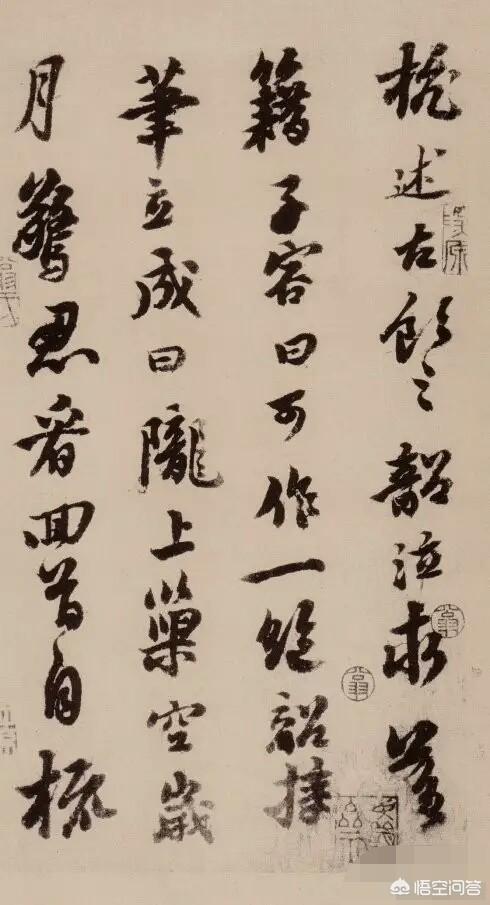 杭述古飲之韶泣求落
籍子容曰可作一絕韶援
筆立成曰隴上巢空歲
月驚忍看回首自梳
悟空问答